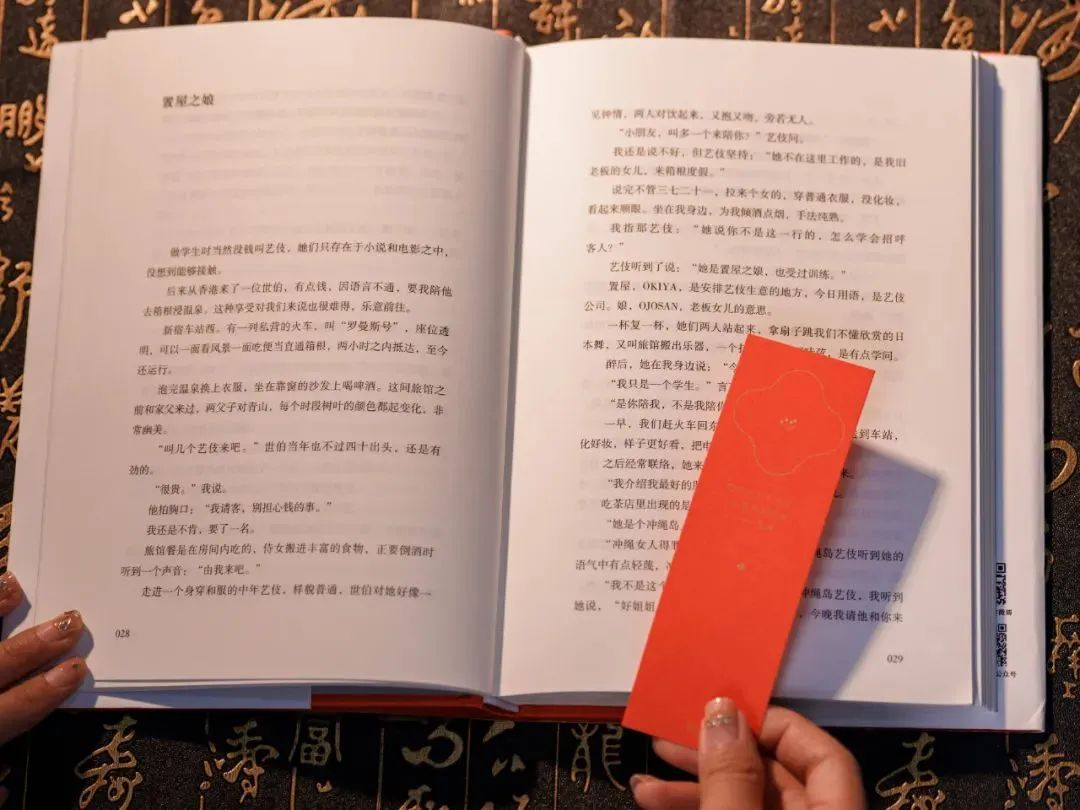 置屋之娘
做学生时当然没钱叫艺伎，她们只存在于小说和电影之中，
没想到能够接触。
后来从香港来了一位世伯，有点钱，因语言不通，要我陪他
去箱根浸温泉。这种享受对我们来说也很难得，乐意前往。
新宿车站西。有一列私营的火车，叫“罗曼斯号”，座位透
明，可以一面看风景一面吃便当直通箱根，两小时之内抵达，至今
还运行。
泡完温泉换上衣服，坐在靠窗的沙发上喝啤酒。这间旅馆之
前和家父来过，两父子对青山，每个时段树叶的颜色都起变化，非
常幽美。
“叫几个艺伎来吧。”世伯当年也不过四十出头，还是有
劲的。
“很贵。”我说。
他拍胸口：“我请客，别担心钱的事。”
我还是不肯，要了一名。
旅馆餐是在房间内吃的，侍女搬进丰富的食物，正要倒酒时
听到一个声音：“由我来吧。”
走进一个身穿和服的中年艺伎，样貌普通，世伯对她好像一
028
见钟情，两人对饮起来，又抱又吻，旁若无人。
“小朋友，叫多一个来陪你？”艺伎问。
我还是说不好，但艺伎坚持：“她不在这里工作的，是我旧
老板的女儿，来箱根度假。”
说完不管三七二十一，拉来个女的，穿普通衣服，没化妆，
看起来顺眼。坐在我身边，为我倾酒点烟，手法纯熟。
我指那艺伎：“她说你不是这一行的，怎么学会招呼
客人？”
艺伎听到了说：“她是置屋之娘，也受过训练。”
置屋，OKIYA，是安排艺伎生意的地方，今日用语，是艺伎
公司。娘，OJOSAN，老板女儿的意思。
一杯复一杯，她们两人站起来，拿扇子跳我们不懂欣赏的日
本舞，又叫旅馆搬出乐器，一个 是有点学问。
醉后，她在我身边说：
“我只是一个学生。”言
“是你陪我，不是我陪
一早，我们赶火车回东 到车站，
化好妆，样子更好看，把电
之后经常联络，她来 来。
“我介绍我最好的
吃茶店里出现的是
“她是个冲绳岛
“冲绳女人得 绳岛艺伎听到她的
语气中有点轻蔑，
“我不是这个 冲绳岛艺伎，我听到
她说，“好姐姐 今晚我请他和你来
029
公众号